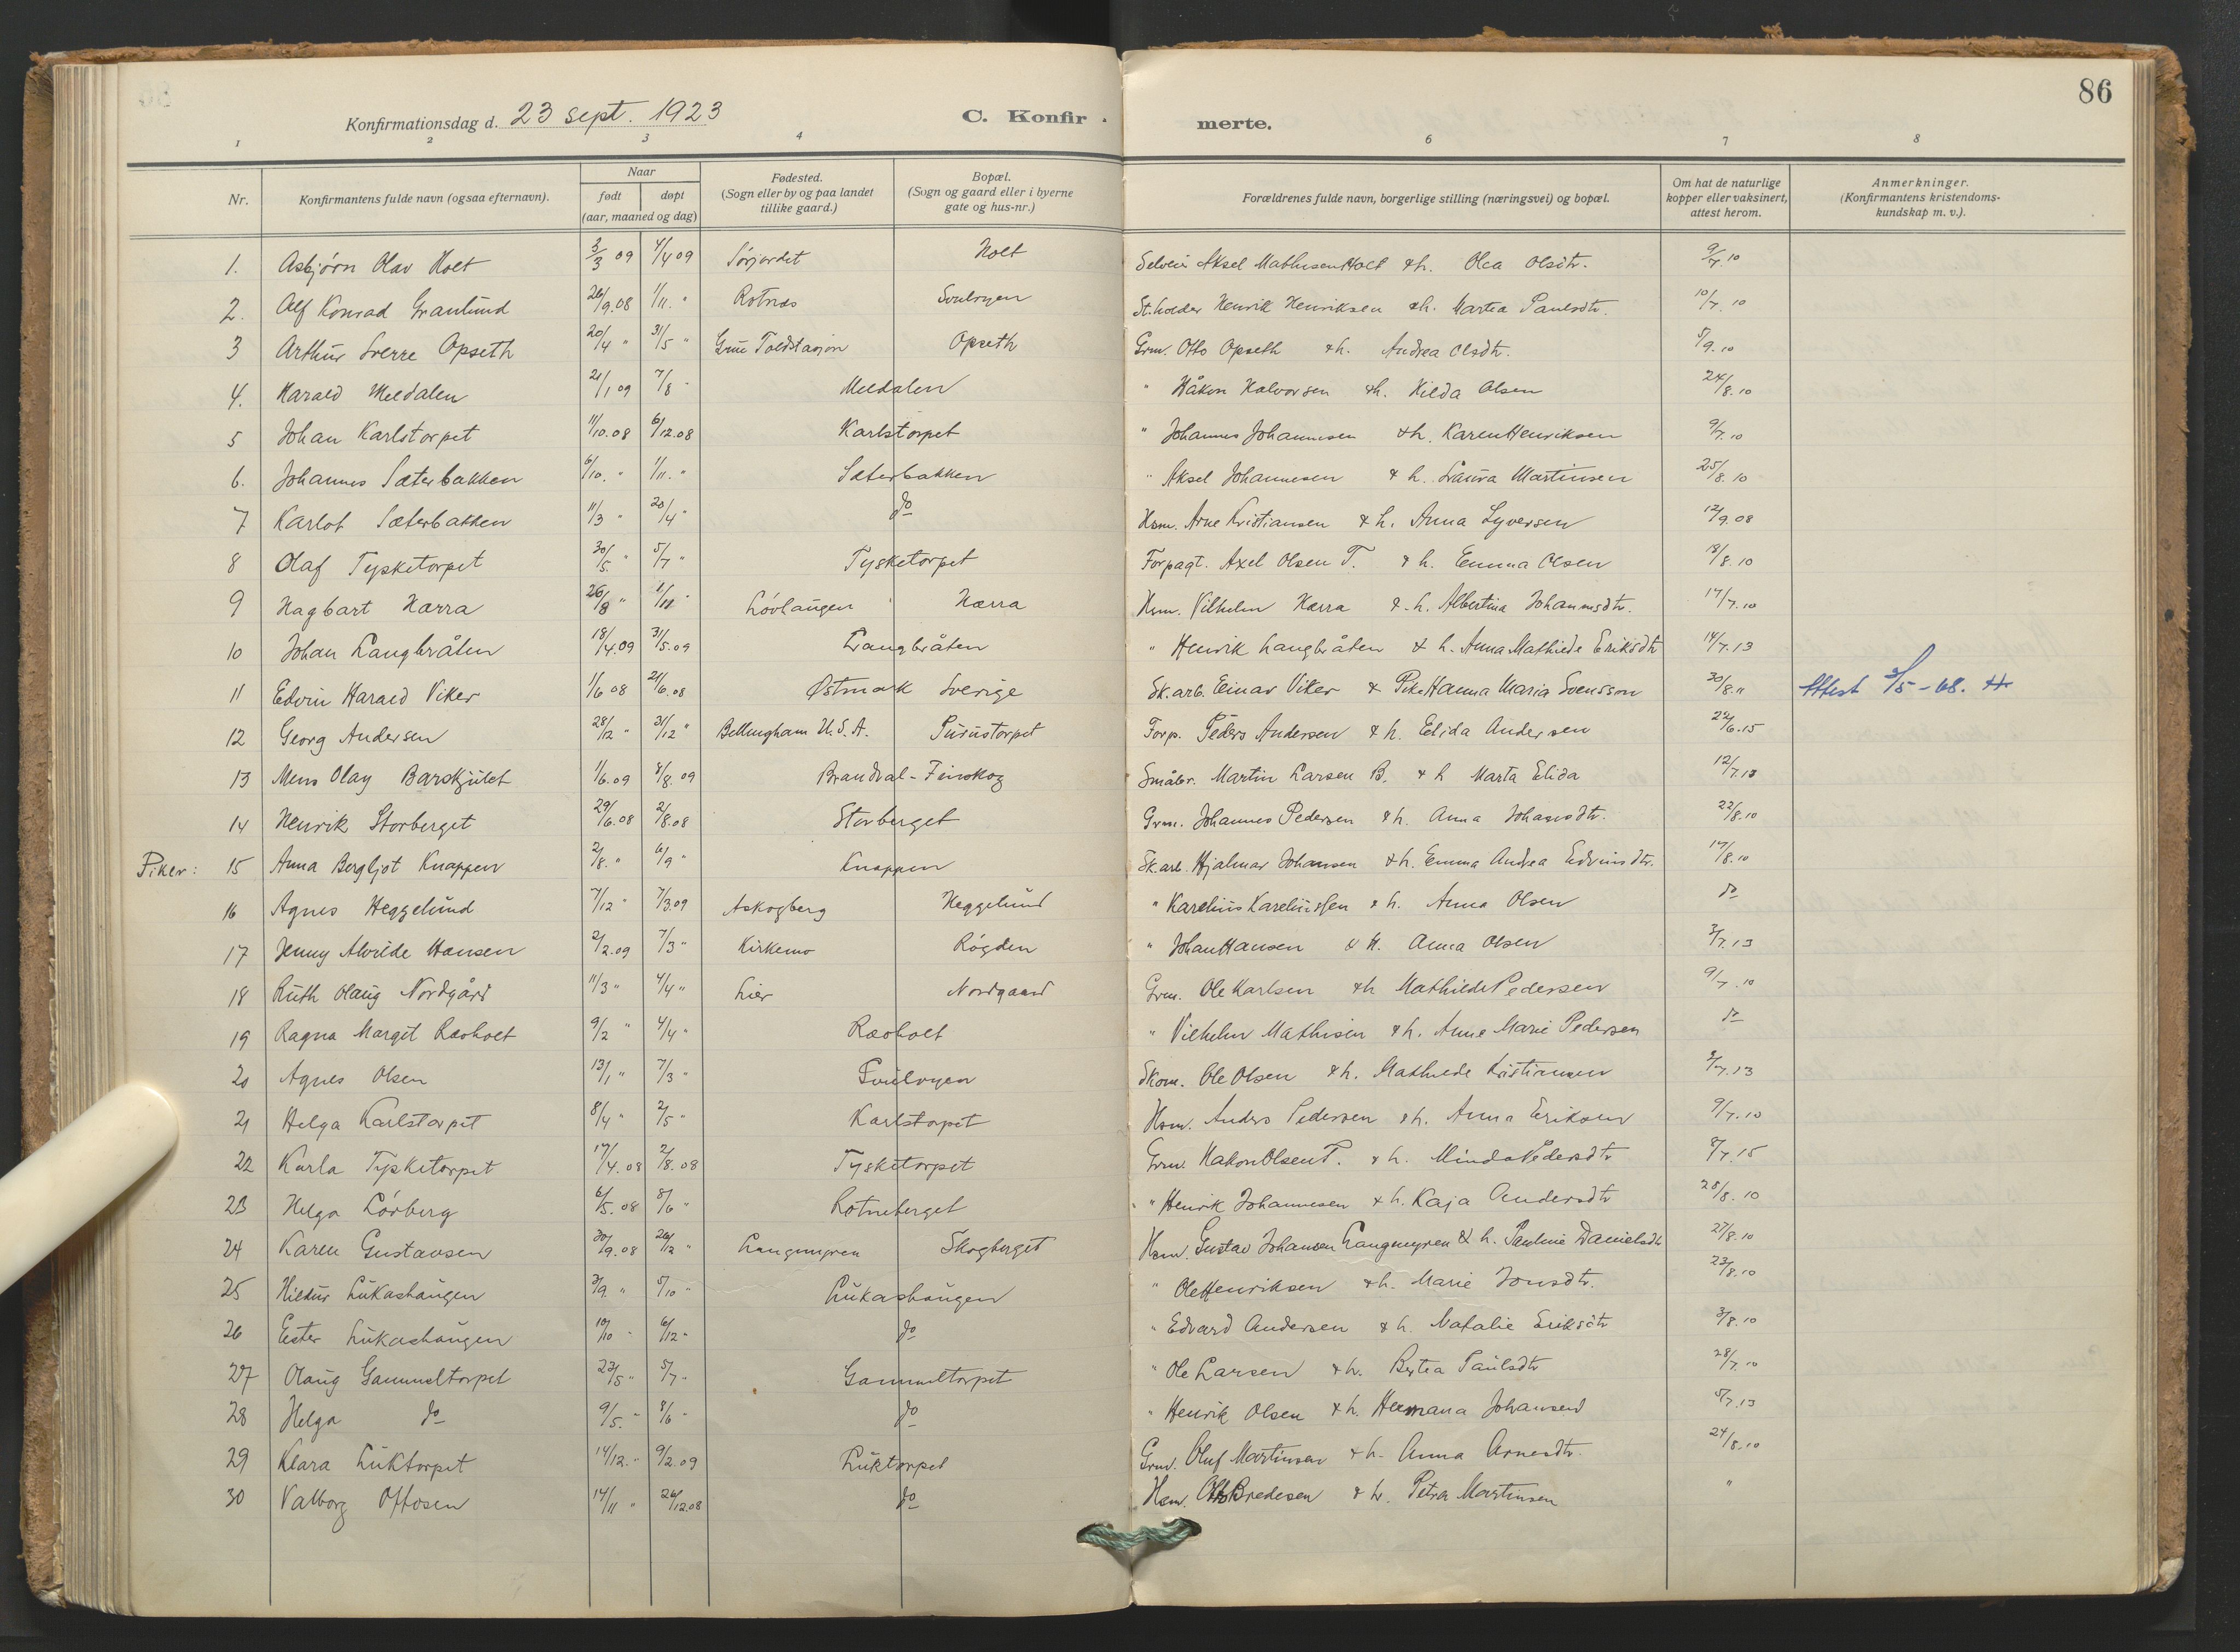 86
Konfirmationsdag d. 23 sept. 1923 C. Konfir merte.
1 2 3 4 6 7 8
Nr. Konfirmantens fulde navn (ogsaa efternavn). Naar født døpt (aar, maaned og dag) Fødested. (Sogn eller by og paa landet tillike gaard.) Bopæl. (Sogn og gaard eller i byerne gate og hus-nr.) Forældrenes fulde navn, borgerlige stilling (næringsvei) og bopæl. Om hat de naturlige kopper eller vaksinert, attest herom. Anmerkninger. (Konfirmantens kristendoms-kundskap m. v.).
1. Asbjørn Olav Holt 3/3 09 4/4 09 Sørjordet Holt Selveier Aksel Mathisen Holt & h. Olea Olsdtr. 9/7.10
2. Alf Konrad Granlund 26/9.08 1/11. " Rotnes Svulryen St.holder Henrik Henriksen & h. Martea Paulsdtr. 10/7.10
3 Arthur Sverre Opseth 20/4 " 31/5 " Grue Toldstasjon Opseth Grm. Otto Opseth & h. Andrea Olsdtr. 5/9.10
4. Harald Meldalen 21/1 09 7/8 " Meldalen " Håkon Halvorsen & h. Hilda Olsen 24/8.10
5 Johan Karlstorpet 11/10.08 6/12.08 Karlstorpet " Johannes Johannesen & h. Karen Henriksen 9/7.10
6. Johannes Sæterbakken 6/10. " 1/11. " Sæterbakken " Aksel Johannesen & h. Laura Martinsen 25/8.10
7 Karlot Sæterbakken 11/3 " 20/4 " do Hsm. Arne Kristiansen & h. Anna Syversen 12/9.08
8 Olaf Tysketorpet 30/5. " 5/7 " Tysketorpet Forpagt. Axel Olsen T. & h. Emma Olsen 18/8.10
9 Hagbart Harra 26/8 " 1/11 " Løvhaugen Harra Hsm. Vilhelm Harra & h. Albertina Johannsdtr. 17/7.10
10 Johan Langbråten 18/4.09 31/5.09 Langbråten " Henrik Langbråten & h. Anna Mathilde Eriksdtr 14/7.13
11 Edvin Harald Viker 1/6 08 21/6.08 Østmark Sverige Sk.arb. Einar Viker & Pike Hanna Maria Svensson 30/8. " Attest 3/5-68. H
12 Georg Andersen 28/12 " 31/12 " Bellingham U.S.A. Purustorpet Forp. Peders Andersen & h. Elida Andersen 22/6.15
13 Mens Olav Barskjulet 1/6.09 8/8.09 Brandval-Finskog Småbr. Martin Larsen B. & h Marta Elida 12/7.13
14 Henrik Storberget 29/6.08 2/8.08 Storberget Grm. Johannes Pedersen & h. Anna Johansdtr. 22/8.10
Piker: 15 Anna Bergljot Knappen 2/8. " 6/9 " Knappen Sk.arb. Hjalmar Johansen & h. Emma Andrea Edvinsdtr. 17/8.10
16 Agnes Heggelund 7/12 " 7/3.09 Askogberg Heggelund " Karelius Kareliussen & h. Anna Olsen do
17 Jenny Alvilde Hansen 2/2.09 7/3 " Kirkemo Røgden " Johan Hansen & h. Anna Olsen 3/7.13
18 Ruth Olaug Nordgård 11/3 " 4/4 " Lier Nordgaard Grm. Ole Karlsen & h Mathilde Pedersen 9/7.10
19 Ragna Margit Raoholt 9/2 " 4/4 " Raoholt " Vilhelm Mathisen & h. Anne Marie Pedersen do
20 Agnes Olsen 13/1 " 7/3 " Svulryen Skom. Ole Olsen & h. Mathilde Kristiansen 3/7.13
21 Helga Karlstorpet 8/4 " 2/5 " Karlstorpet Hsm. Anders Pedersen & h. Anna Eriksen 9/7.10
22 Karla Tysketorpet 17/4.08 2/8.08 Tysketorpet Grm. Hakon Olsen T. & h. Minda Pedersdtr 8/7.15
23 Helga Lørberg 6/5.08 8/6 " Rotneberget " Henrik Johannesen & h. Kaja Andersdtr 28/8.10
24 Karen Gustavsen 30/9.08 26/12 " Langmyren Skogberget Hsm. Gustav Johansen Langmyren & h. Pauline Danielsdtr 27/8.10
25 Hildur Lukashaugen 3/9. " 5/10 " Lukashaugen " Ole Henriksen & h. Marie Jonsdtr. 23/8.10
26 Ester Lukashaugen 10/10 " 6/12 " do " Edvard Andersen & h. Natalie Eriksdtr 3/8.10
27 Olaug Gammeltorpet 23/5 " 5/7 " Gammeltorpet " Ole Larsen & h. Bertea Paulsdtr 28/7.10
28 Helga do 9/5. " 8/6 " do " Henrik Olsen & h. Hermana Johansen 5/7.13
29 Klara Luktorpet 14/12. " 9/2.09 Luktorpet Grm. Oluf Martinsen & h. Anna Arnesdtr. 24/8.10
30 Valborg Ottosen 14/11 " 26/12.08 do Hsm. Otto Bredesen & h. Petra Martinsen "